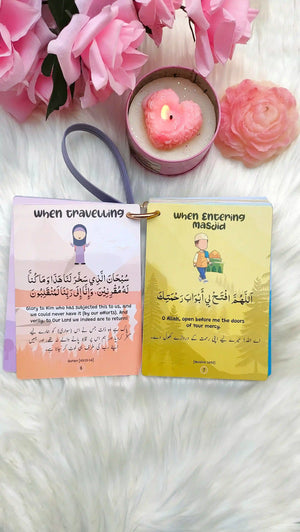 When travelling
سُبْحَانَ الَّذِي سَخَّرَ لَنَا هَذَا وَمَا كُنَّا
لَهُ مُقْرِنِينَ وَإِنَّا إِلَى رَبِّنَا لَمُنْقَلِبُونَ
Glory to Him who has subjected this to us, and
we could never have it (by our efforts). And
verily, to Our Lord we indeed are to return!
6
When Entering
Masjid
اَللّٰهُمَّ افْتَحْ لِي أَبْوَابَ رَحْمَتِكَ
O Allah, open before me the doors
of Your mercy.
اے اللہ! میرے لیے اپنی رحمت کے دروازے کھول دے۔
7